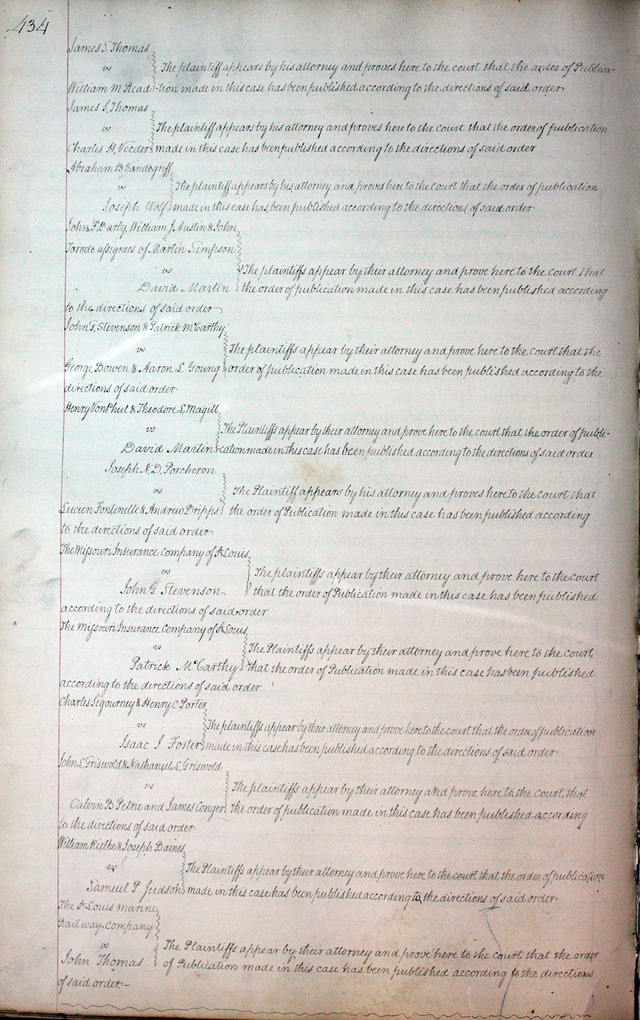 434
James S Thomas
vs
The plaintiff appears by his attorney and proves here to the court that the order of Publica-
William M. Read
tion made in this case has been published according to the directions of said order
James S Thomas
vs
The plaintiff appears by his attorney and proves here to the court that the order of publication
Charles H, Veeder
made in this case has been published according to the directions of said order
Abraham B Vandegriff
vs
The plaintiff appears by his attorney and proves here to the court that the order of publication
Joseph Wolf
made in this case has been published according to the directions of said order
John F. Darby, William J. Austin & John
Torode assignees of Martin Timpson
vs
The plaintiffs appear by their attorney and prove here to the Court that
David Martin
the order of publication made in this case has been published according
to the directions of said order
John G, Stevenson & Patrick McCarthy
vs
The plaintiffs appear by their attorney and prove here to the Court that the
George Bowen & Aaron L Young
order of publication made in this case has been published according to the
directions of said order
Henry Vonkhul & Theodore L. Magill
vs
The Plaintiffs appear by their attorney and prove here to the court that the order of publi-
David Martin
cation made in this case has been published according to the directions of said order
Joseph N. D, Porcheron
vs
The Plaintiff appears by his attorney and proves here to the court that
Lucien Fontenelle & Andrew Dripps
the order of Publication made in this case has been published according
to the directions of said order
The Missouri Insurance Company of St Louis
vs
The plaintiffs appear by their attorney and prove here to the Court
John G Stevenson
that the order of Publication made in this case has been published
according to the directions of said order
The Missouri Insurance Company of St Louis
vs
The Plaintiffs appear by their attorney and prove here to the Court
Patrick McCarthy
that the order of Publication made in this case has been published
according to the directions of said order
Charles Sigourney & Henry C Porter
vs
The plaintiffs appear by their attorney and prove here to the court that the order of publication
Isaac I Foster
made in this case has been published according to the directions of said order
John L Griswold & Nathaniel L Griswold
vs
The plaintiffs appear by their attorney and prove here to the Court, that
Calvin B Petrie and James Conger
the order of publication made in this case has been published according
to the directions of said order
William Rielhe & Joseph Daines
vs
The Plaintiffs appear by their attorney and prove here to the court that the order of publication
Samuel P Judson
made in this case has been published according to the directions of said order
The St Louis marine
Railway Company
vs
The Plaintiffs appear by their attorney and prove here to the court that the order
John Thomas
of Publication made in this case has been published according to the directions
of said order.-